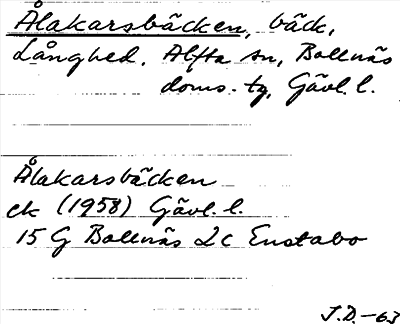 Ålakarsbäcken, bäck,
Långhed, Alfta sn, Bollnäs
doms.tg, Gävl. l.
Ålakarsbäcken
ek (1958) Gävl. l.
15 G Bollnäs 2c Enstabo
J.D.-63